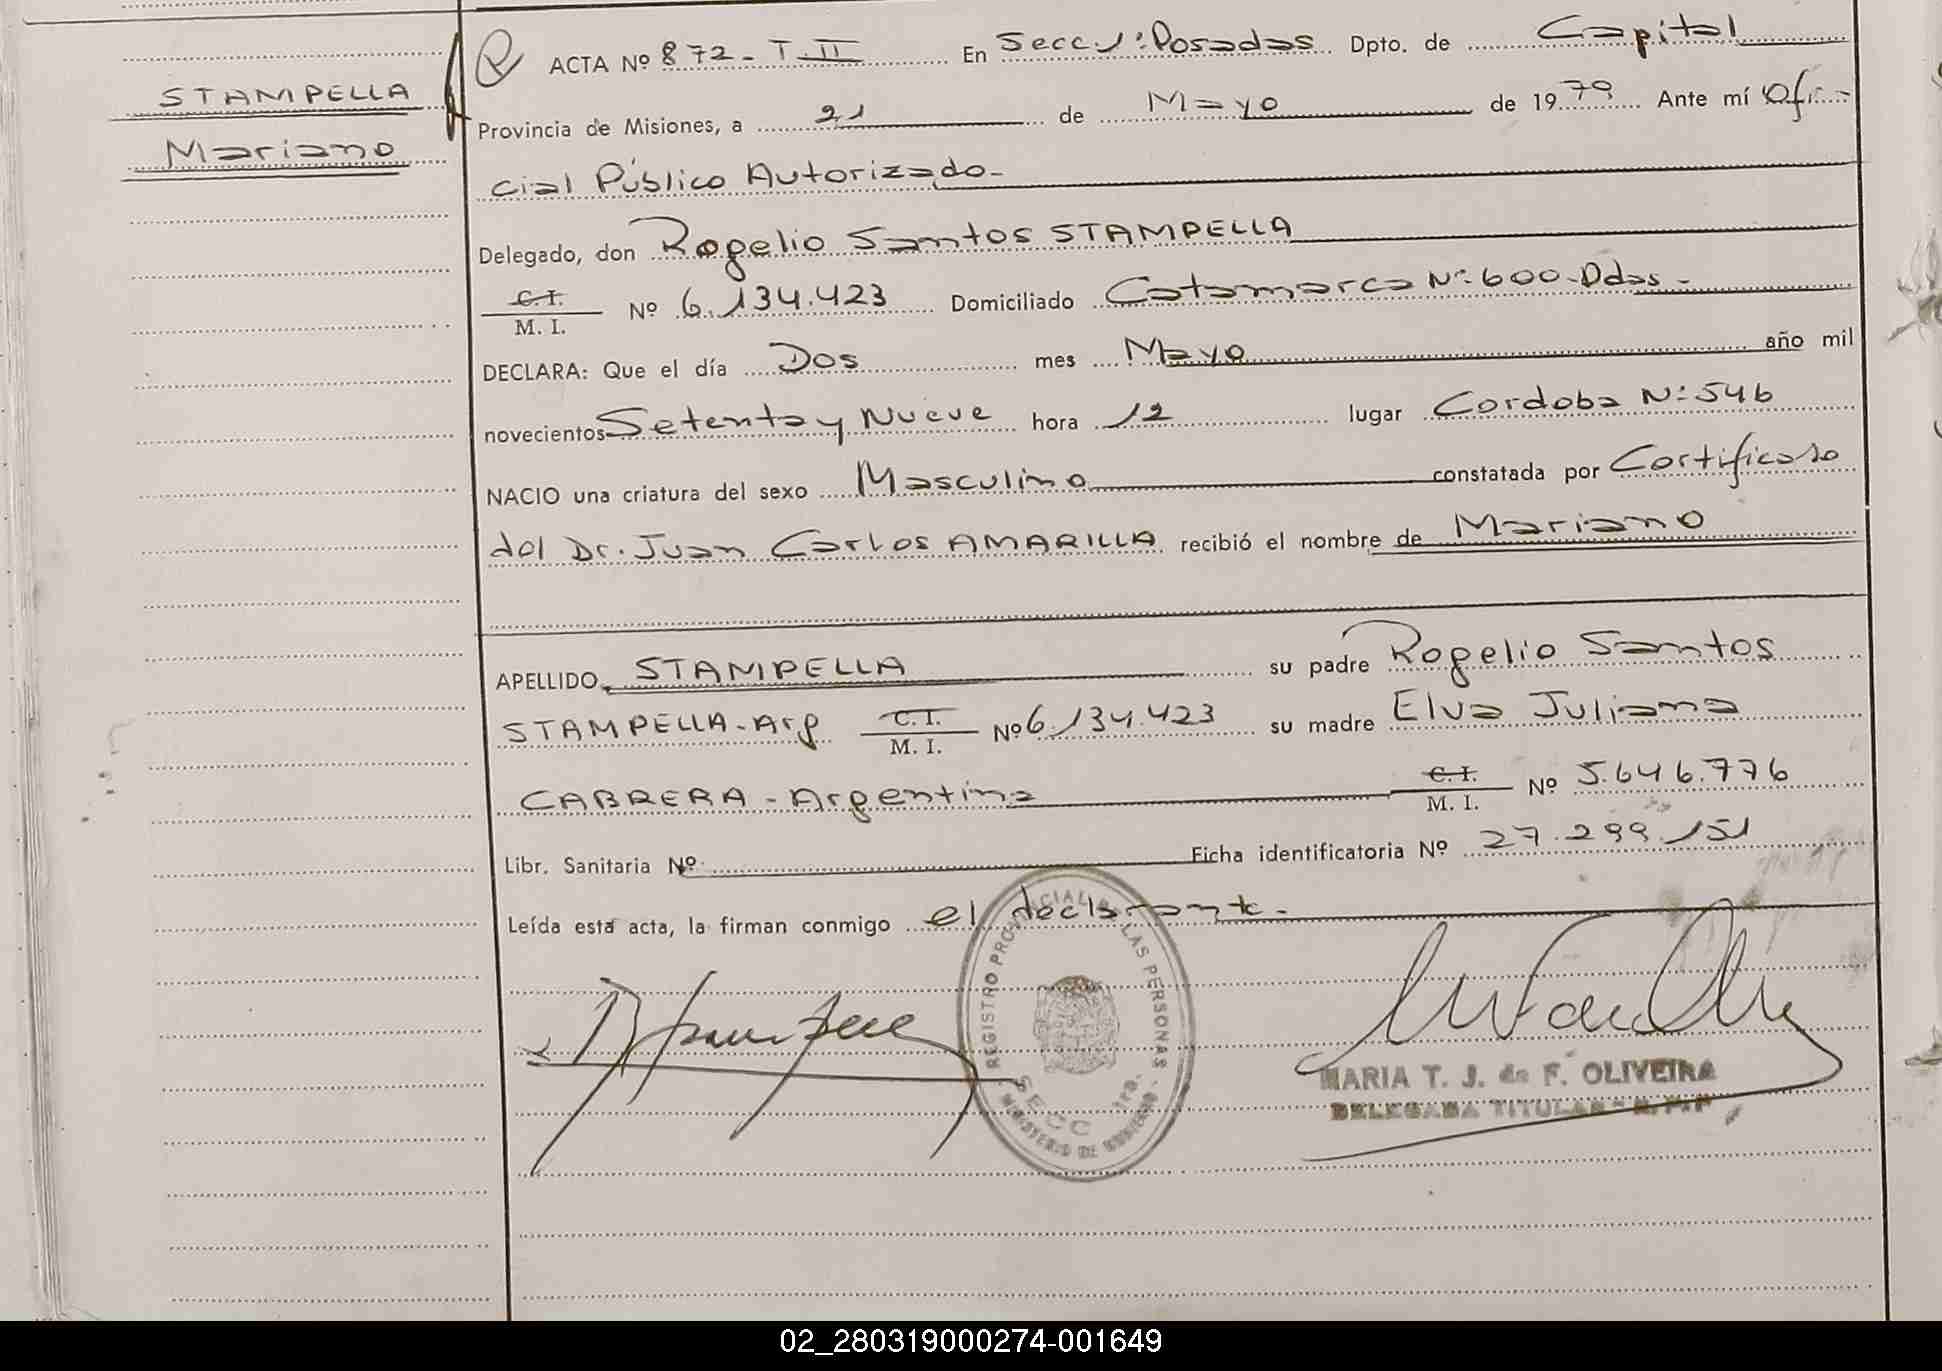 STAMPELLA
Mariano
ACTA Nº 872 - T. II En Secc. 1ª: Posadas Dpto. de Capital
Provincia de Misiones, a 21 de Mayo de 1979 Ante mí Ofi-
cial Público Autorizado-
Delegado, don Rogelio Santos STAMPELLA
C. I.
M. I. Nº 6.134.423 Domiciliado Catamarca Nº: 600-Pdas-
DECLARA: Que el día Dos mes Mayo año mil
novecientos Setenta y Nueve hora 12 lugar Cordoba Nº: 546
NACIO una criatura del sexo Masculino constatada por Certificado
del Dr. Juan Carlos AMARILLA recibió el nombre de Mariano
APELLIDO STAMPELLA su padre Rogelio Santos
STAMPELLA-Arg C. I.
M. I. Nº 6.134.423 su madre Elva Juliana
CABRERA - Argentina C. I.
M. I. Nº 5.646.776
Libr. Sanitaria Nº Ficha identificatoria Nº 27.299.151
Leída está acta, la firman conmigo el declarante-
REGISTRO PROVINCIAL DE LAS PERSONAS
SECC 1ra.
MINISTERIO DE GOBIERNO
MARIA T. J. de F. OLIVEIRA
DELEGADA TITULAR - R. P. P
02_280319000274-001649